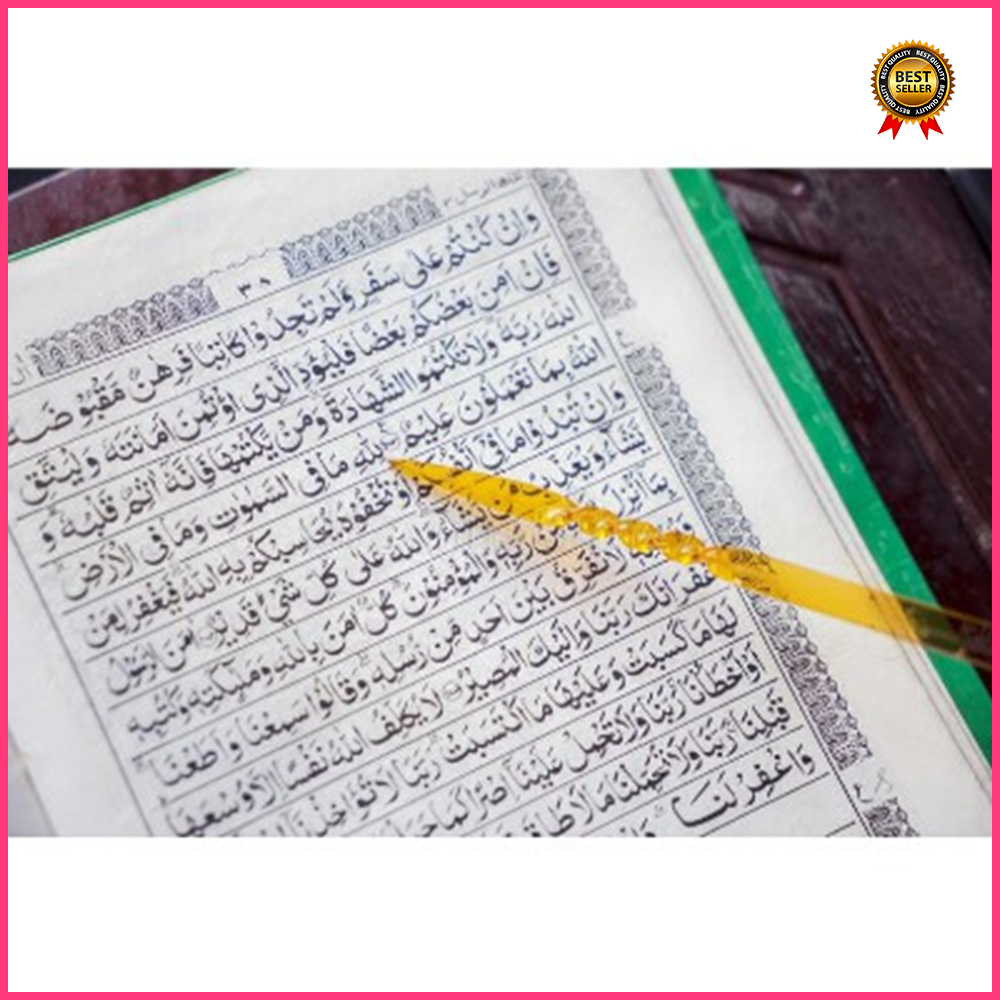 BEST QUALITY BEST QUALITY
BEST
SELLER
BEST QUALITY BEST QUALITY
٣٨
وَاِنْ كُنْتُمْ عَلٰى سَفَرٍ وَّلَمْ تَجِدُوْا كَاتِبًا فَرِهٰنٌ مَّقْبُوْضَةٌ
فَاِنْ اَمِنَ بَعْضُكُمْ بَعْضًا فَلْيُؤَدِّ الَّذِى اؤْتُمِنَ اَمَانَتَهٗ وَلْيَتَّقِ
اللّٰهَ رَبَّهٗ وَلَا تَكْتُمُوا الشَّهَادَةَ وَمَنْ يَّكْتُمْهَا فَاِنَّهٗۤ اٰثِمٌ قَلْبُهٗ وَ
اللّٰهُ بِمَا تَعْمَلُوْنَ عَلِيْمٌ لِلّٰهِ مَا فِى السَّمٰوٰتِ وَمَا فِى الْاَرْضِ
وَاِنْ تُبْدُوْا مَا فِىْۤ اَوْ تُخْفُوْهُ يُحَاسِبْكُمْ بِهِ اللّٰهُ فَيَغْفِرُ لِمَنْ
يَّشَآءُ وَيُعَذِّبُ يَّشَآءُ وَاللّٰهُ عَلٰى كُلِّ شَىْءٍ قَدِيْرٌ اٰمَنَ الرَّسُوْلُ
بِمَاۤ اُنْزِلَ مِنْ رَّبِّهٖ وَالْمُؤْمِنُوْنَ كُلٌّ اٰمَنَ بِاللّٰهِ وَمَلٰٓئِكَتِهٖ وَكُتُبِهٖ
لَا نُفَرِّقُ بَيْنَ اَحَدٍ مِّنْ رُّسُلِهٖ وَقَالُوْا سَمِعْنَا وَاَطَعْنَا
غُفْرَانَكَ رَبَّنَا وَاِلَيْكَ الْمَصِيْرُ لَا يُكَلِّفُ اللّٰهُ نَفْسًا اِلَّا وُسْعَهَا
لَهَا مَا كَسَبَتْ وَعَلَيْهَا مَا اكْتَسَبَتْ رَبَّنَا لَا تُؤَاخِذْنَاۤ
اَوْ اَخْطَاْنَا رَبَّنَا وَلَا تَحْمِلْ عَلَيْنَاۤ اِصْرًا كَمَا
قَبْلِنَا رَبَّنَا وَلَا تُحَمِّلْنَا مَا لَا
وَاغْفِرْ لَنَا